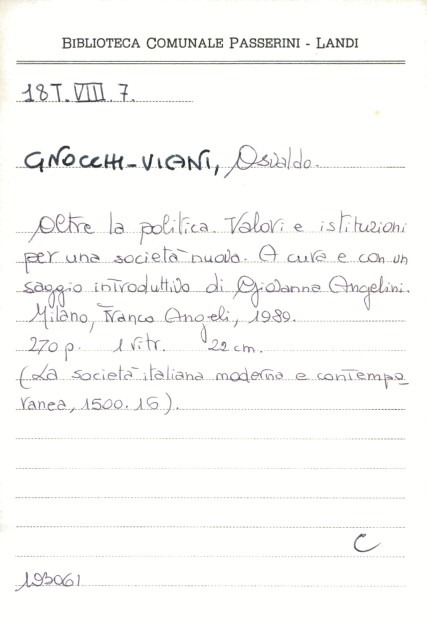 BIBLIOTECA COMUNALE PASSERINI - LANDI
18 T. VIII. 7.
GNOCCHI-VIANI, Osvaldo.
Oltre la politica. Valori e istituzioni
per una società nuova. A cura e con un
saggio introduttivo di Giovanna Angelini.
Milano, Franco Angeli, 1989.
270 p. 1 ritr. 22 cm.
(La società italiana moderna e contempo
ranea, 1500. 16).
C
193061